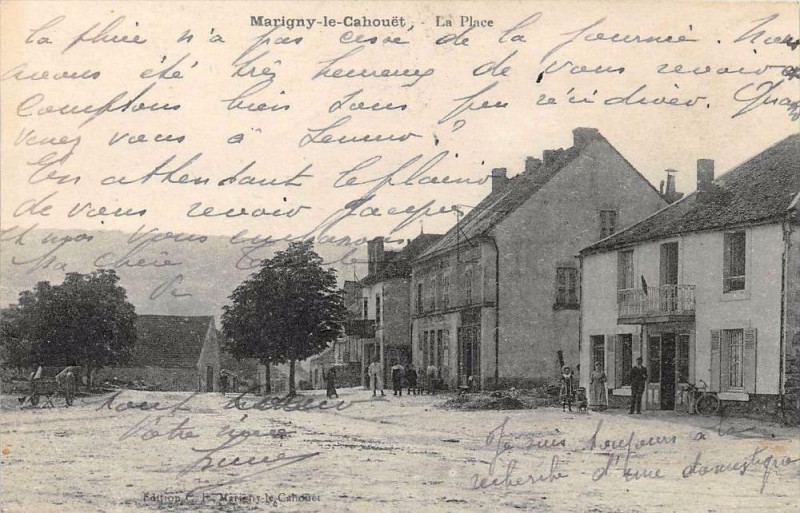 Marigny-le-Cahouët. - La Place
la pluie n'a pas cessé de la journée. Nous
avons été très heureux de vous revoir
Comptons bien sous peu récidiver. Quand
venez vous à ?
En attendant le plaisir
de vous revoir Jacques
et nous vous embrassons
Ma chère
tout
Votre
Je suis toujours à la
recherche d'une domestique
Edition C. F., Marigny-le-Cahouët